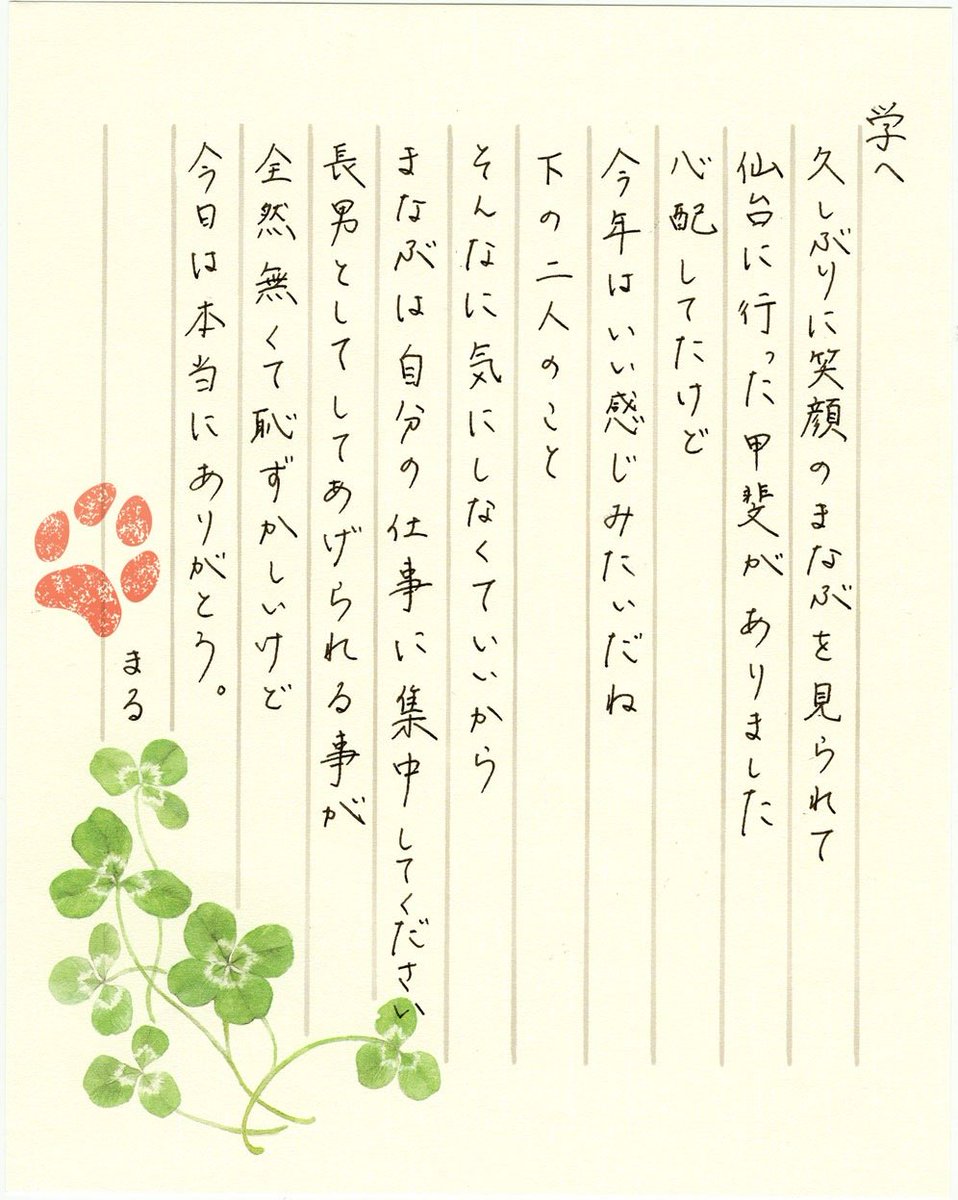 学へ
久しぶりに笑顔のまなぶを見られて
仙台に行った甲斐がありました
心配してたけど
今年はいい感じみたいだね
下の二人のこと
そんなに気にしなくていいから
まなぶは自分の仕事に集中してください
長男としてしてあげられる事が
全然無くて恥ずかしいけど
今日は本当にありがとう。
まる